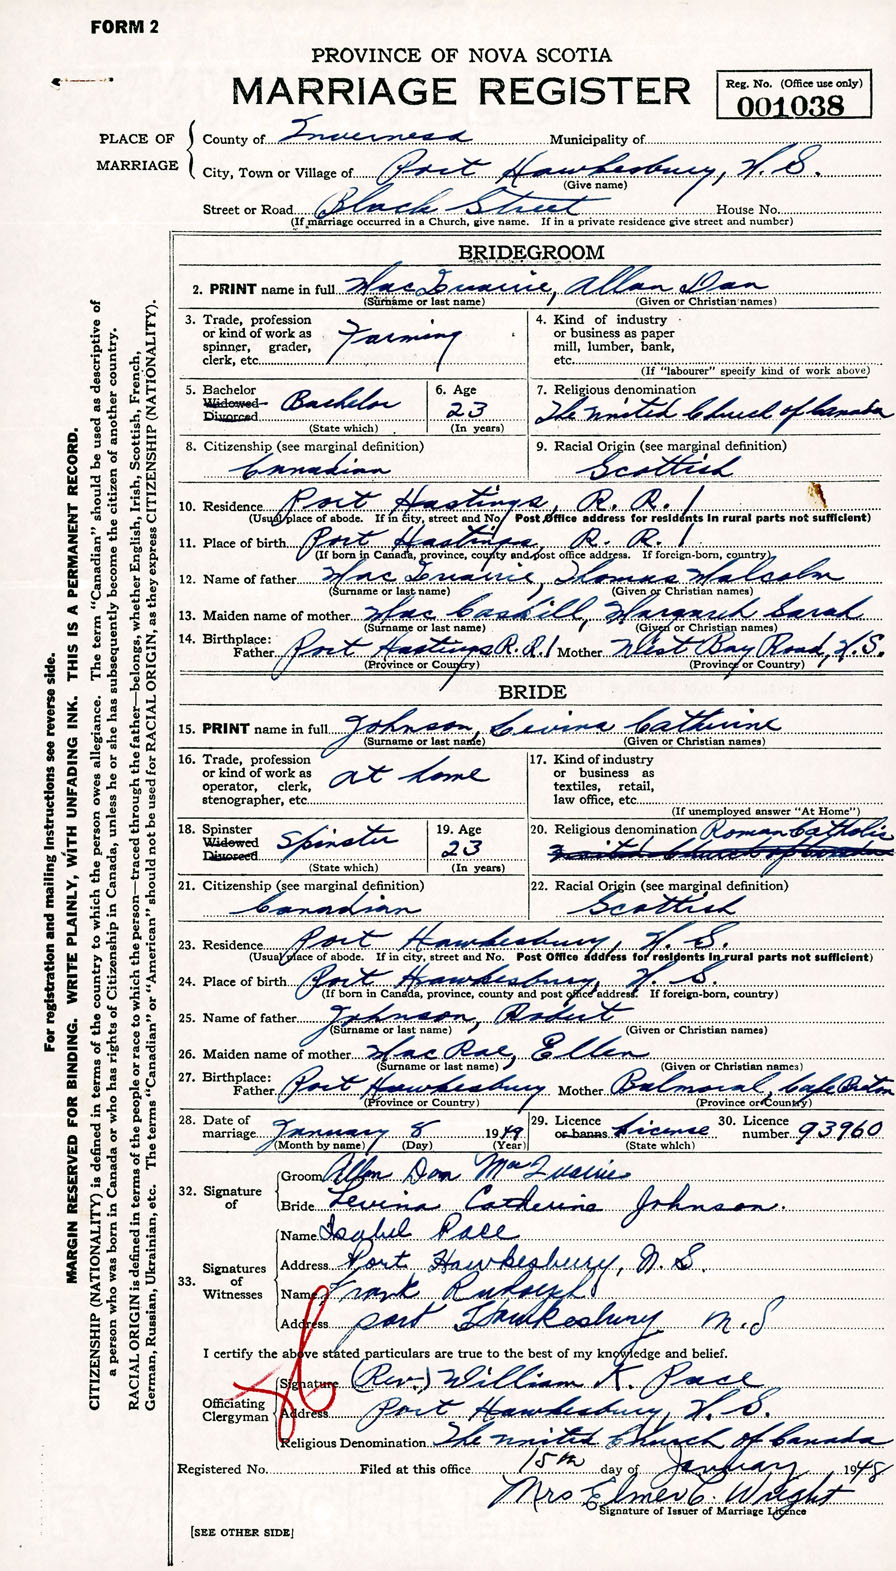 FORM 2
PROVINCE OF NOVA SCOTIA
MARRIAGE REGISTER
Reg. No. (Office use only)
001038
PLACE OF MARRIAGE
County of Inverness Municipality of
City, Town or Village of Port Hawkesbury, N. S.
(Give name)
Street or Road Black Street House No.
(If marriage occurred in a Church, give name. If in a private residence give street and number)
BRIDEGROOM
2. PRINT name in full MacQuarrie, Allan Dan
(Surname or last name) (Given or Christian names)
3. Trade, profession or kind of work as spinner, grader, clerk, etc. Farming
4. Kind of industry or business as paper mill, lumber, bank, etc.
(If "labourer" specify kind of work above)
5. Bachelor Widowed Divorced Bachelor
(State which)
6. Age 23
(In years)
7. Religious denomination
The United Church of Canada
8. Citizenship (see marginal definition)
Canadian
9. Racial Origin (see marginal definition)
Scottish
10. Residence Port Hastings, R. R. 1
(Usual place of abode. If in city, street and No. Post Office address for residents in rural parts not sufficient)
11. Place of birth Port Hastings, R. R. 1
(If born in Canada, province, county and post office address. If foreign-born, country)
12. Name of father MacQuarrie, Thomas Malcolm
(Surname or last name) (Given or Christian names)
13. Maiden name of mother MacCaskill, Margaret Sarah
(Surname or last name) (Given or Christian names)
14. Birthplace: Father Port Hastings R.R.1 Mother West Bay Road, N.S.
(Province or Country) (Province or Country)
BRIDE
15. PRINT name in full Johnson, Levina Catherine
(Surname or last name) (Given or Christian names)
16. Trade, profession or kind of work as operator, clerk, stenographer, etc. at home
17. Kind of industry or business as textiles, retail, law office, etc.
(If unemployed answer "At Home")
18. Spinster Widowed Divorced Spinster
(State which)
19. Age 23
(In years)
20. Religious denomination Roman Catholic
United Church of Canada
21. Citizenship (see marginal definition)
Canadian
22. Racial Origin (see marginal definition)
Scottish
23. Residence Port Hawkesbury, N. S.
(Usual place of abode. If in city, street and No. Post Office address for residents in rural parts not sufficient)
24. Place of birth Port Hawkesbury, N. S.
(If born in Canada, province, county and post office address. If foreign-born, country)
25. Name of father Johnson, Robert
(Surname or last name) (Given or Christian names)
26. Maiden name of mother MacRae, Ellen
(Surname or last name) (Given or Christian names)
27. Birthplace: Father Port Hawkesbury Mother Balmoral, Cape Breton
(Province or Country) (Province or Country)
28. Date of marriage January 8 1949
(Month by name) (Day) (Year)
29. Licence or banns License
(State which)
30. Licence number 93960
32. Signature of
Groom Allan Dan MacQuarrie
Bride Levina Catherine Johnson.
33. Signatures of Witnesses
Name Isabel Pace
Address Port Hawkesbury, N. S.
Name Frank Rudolph
Address Port Hawkesbury N.S
I certify the above stated particulars are true to the best of my knowledge and belief.
Officiating Clergyman
Signature (Rev.) William K. Pace
Address Port Hawkesbury, N. S.
Religious Denomination The United Church of Canada
Registered No. Filed at this office 15th day of January 1948
Mrs Elmer C. Wright
Signature of Issuer of Marriage Licence
[SEE OTHER SIDE]
For registration and mailing Instructions see reverse side.
MARGIN RESERVED FOR BINDING. WRITE PLAINLY, WITH UNFADING INK. THIS IS A PERMANENT RECORD.
CITIZENSHIP (NATIONALITY) is defined in terms of the country to which the person owes allegiance. The term "Canadian" should be used as descriptive of
a person who was born in Canada or who has rights of Citizenship in Canada, unless he or she has subsequently become the citizen of another country.
RACIAL ORIGIN is defined in terms of the people or race to which the person—traced through the father—belongs, whether English, Irish, Scottish, French,
German, Russian, Ukrainian, etc. The terms "Canadian" or "American" should not be used for RACIAL ORIGIN, as they express CITIZENSHIP (NATIONALITY).